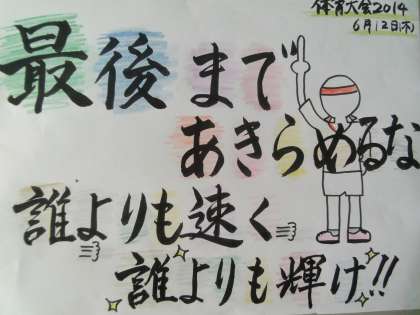 体育大会2014
6月12日(木)
最後まで
あきらめるな
誰よりも速く
誰よりも輝け!!